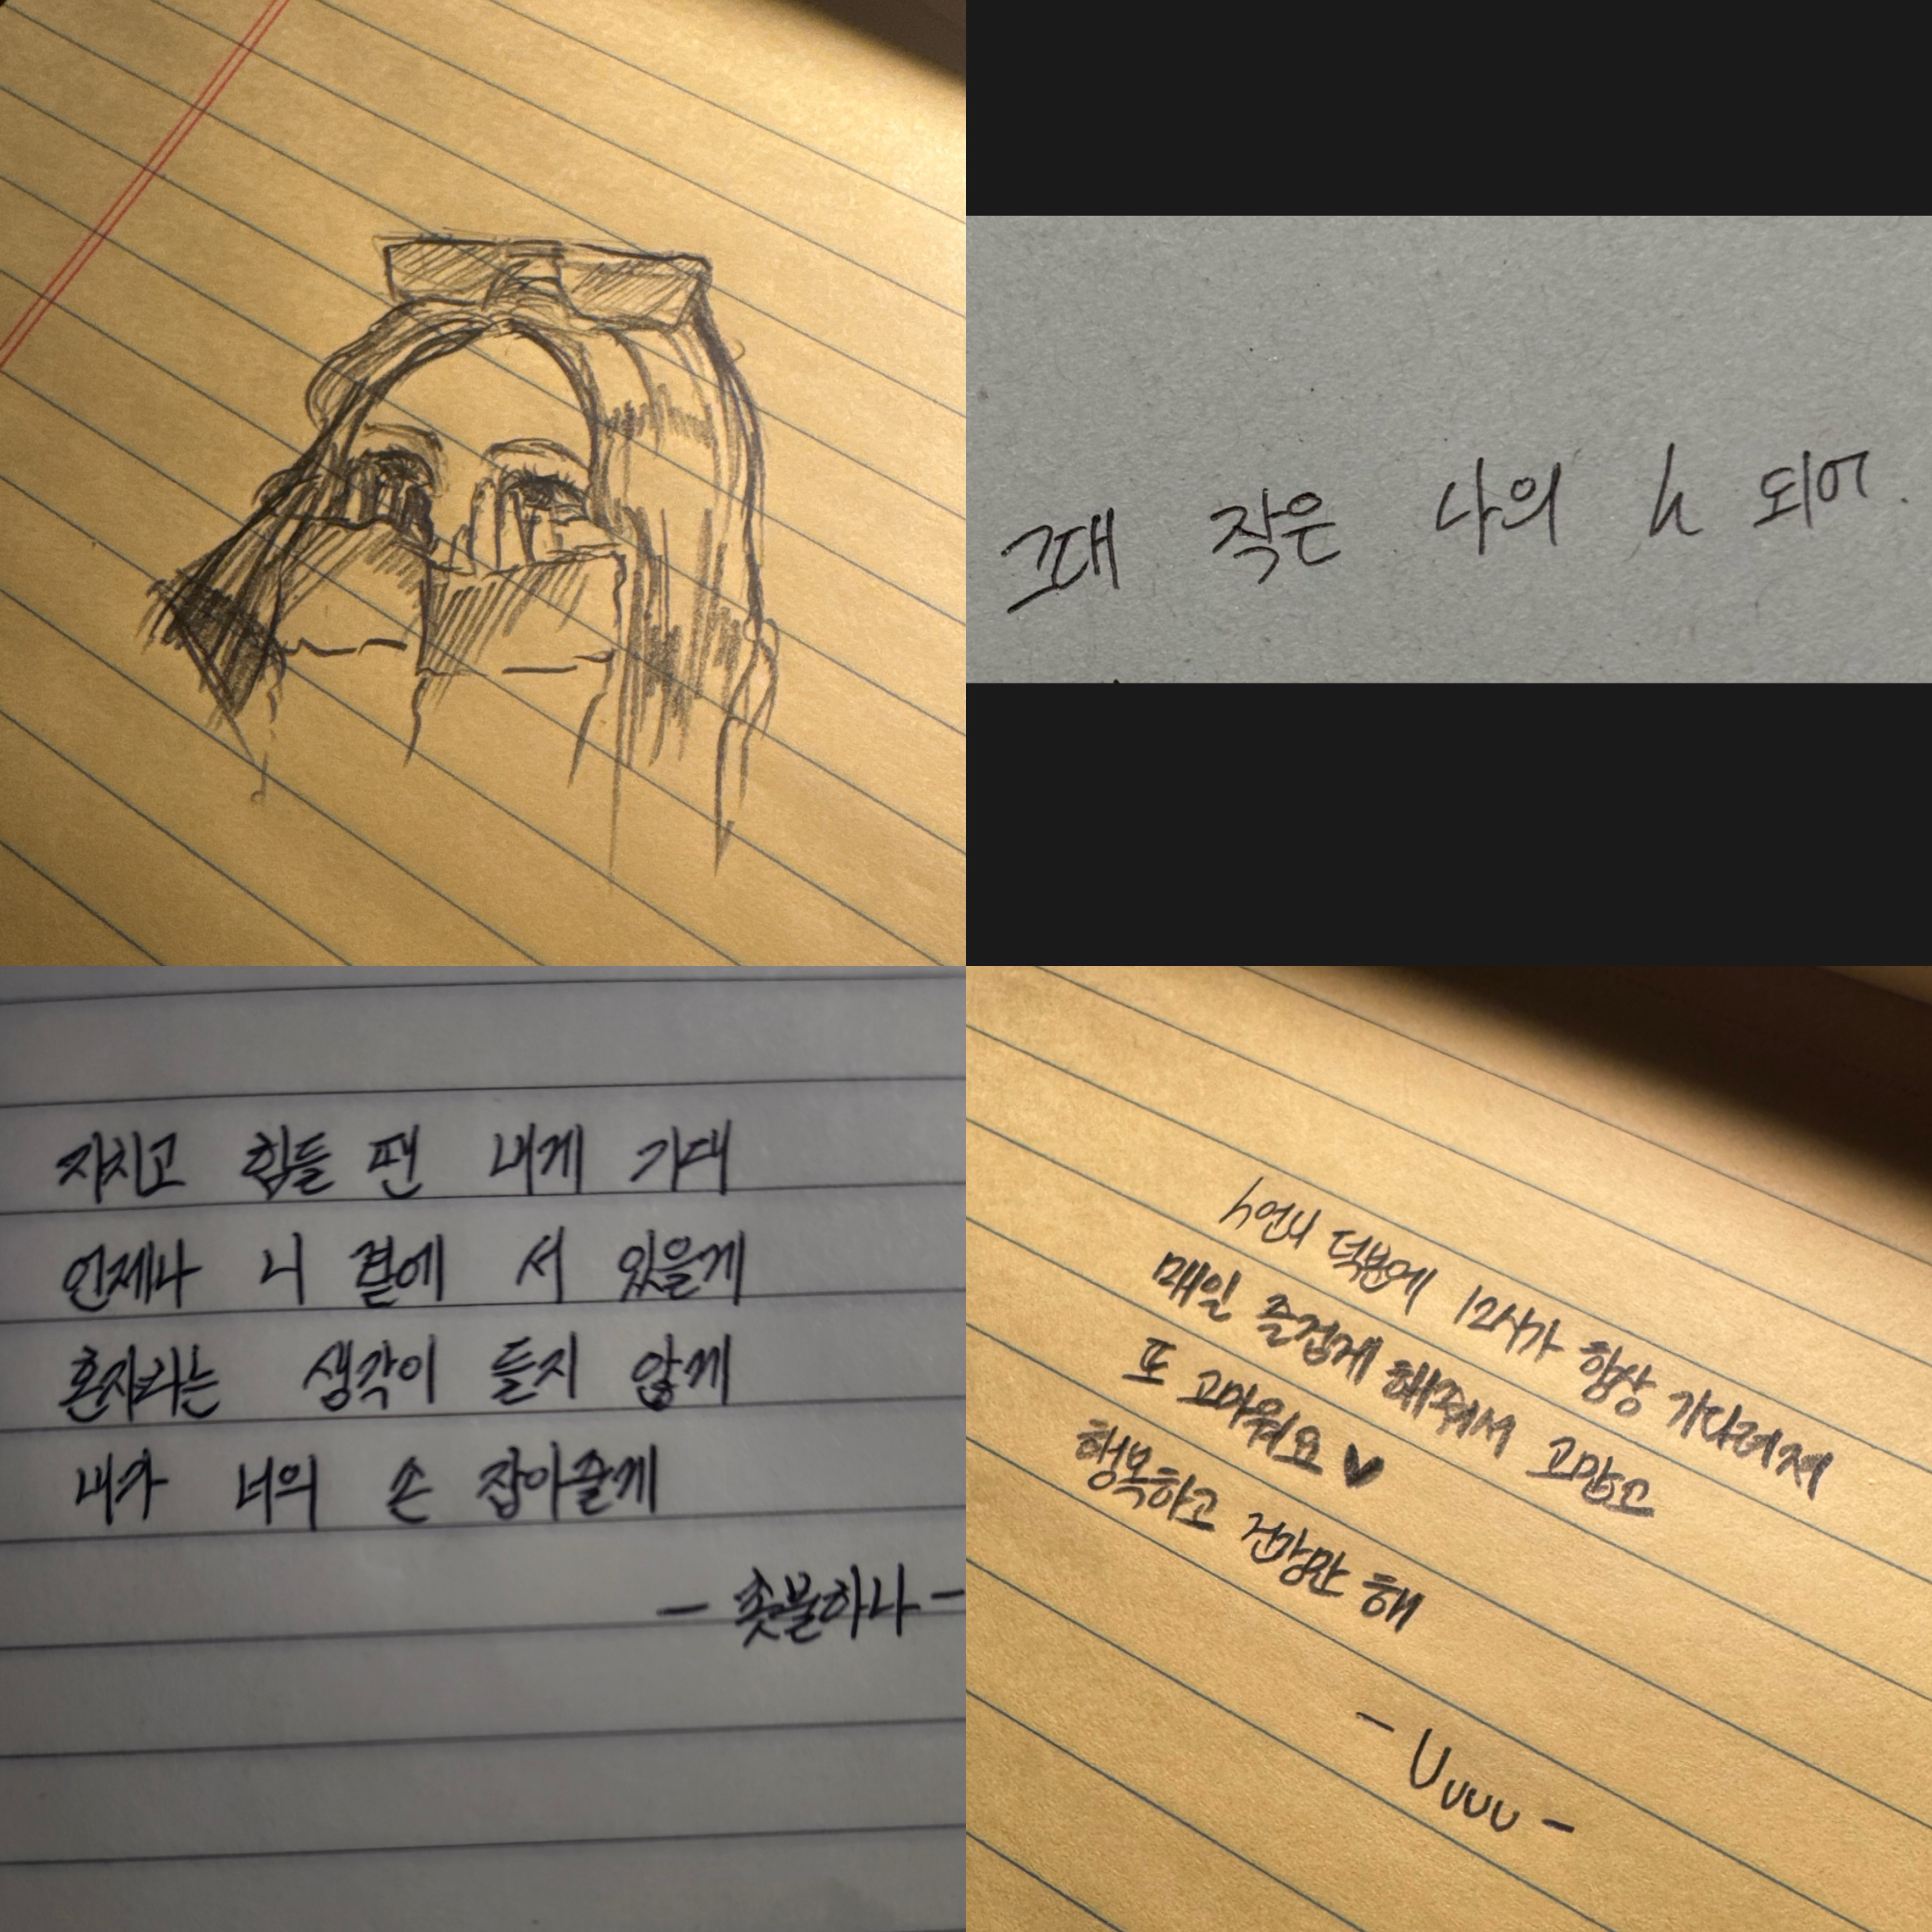 그대 작은 나의 h 되어.
지치고 힘들 땐 내게 기대
언제나 니 곁에 서 있을게
혼자라는 생각이 들지 않게
내가 너의 손 잡아줄게
- 촛불하나 -
h언니 덕분에 12시가 항상 기다려져
매일 즐겁게 해줘서 고맙고
또 고마워요 ♥
행복하고 건강만 해
- Uuuu -